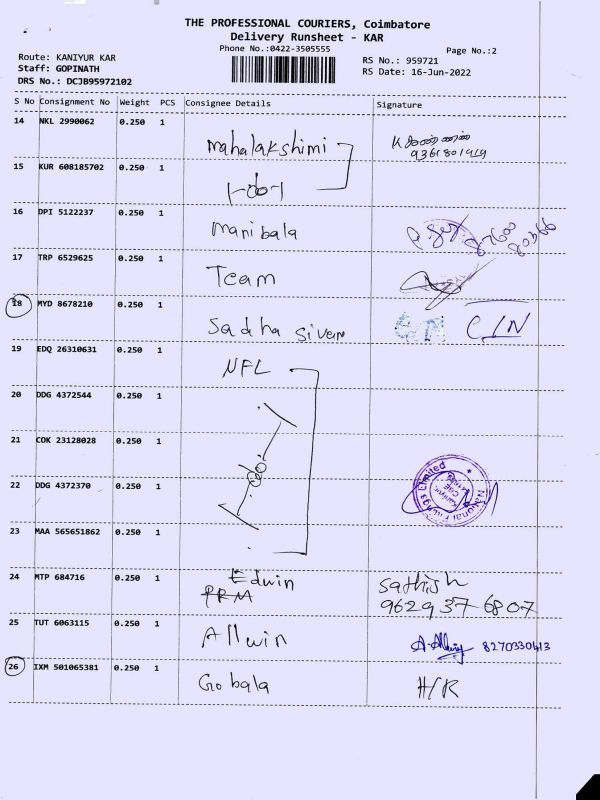 THE PROFESSIONAL COURIERS, Coimbatore
Delivery Runsheet - KAR
Phone No.:0422-3505555
Page No.:2
Route: KANIYUR KAR
Staff: GOPINATH
DRS No.: DCJB95972102
RS No.: 959721
RS Date: 16-Jun-2022
S No Consignment No Weight PCS Consignee Details Signature
14 NKL 2990062 0.250 1 Mahalakshimi
9361801919
15 KUR 608185702 0.250 1
16 DPI 5122237 0.250 1 Manibala
17 TRP 6529625 0.250 1 Team
18 MYD 8678210 0.250 1 Sadha Sivam
19 EDQ 26310631 0.250 1 NFL
20 DDG 4372544 0.250 1
21 COK 23128028 0.250 1
22 DDG 4372370 0.250 1
National Fittings Limited
23 MAA 565651862 0.250 1
24 MTP 684716 0.250 1 Edwin Sathish
PRM 9629 37 6807
25 TUT 6063115 0.250 1 Allwin A. Allwin 8270330413
26 IXM 501065381 0.250 1 Gobala H/R